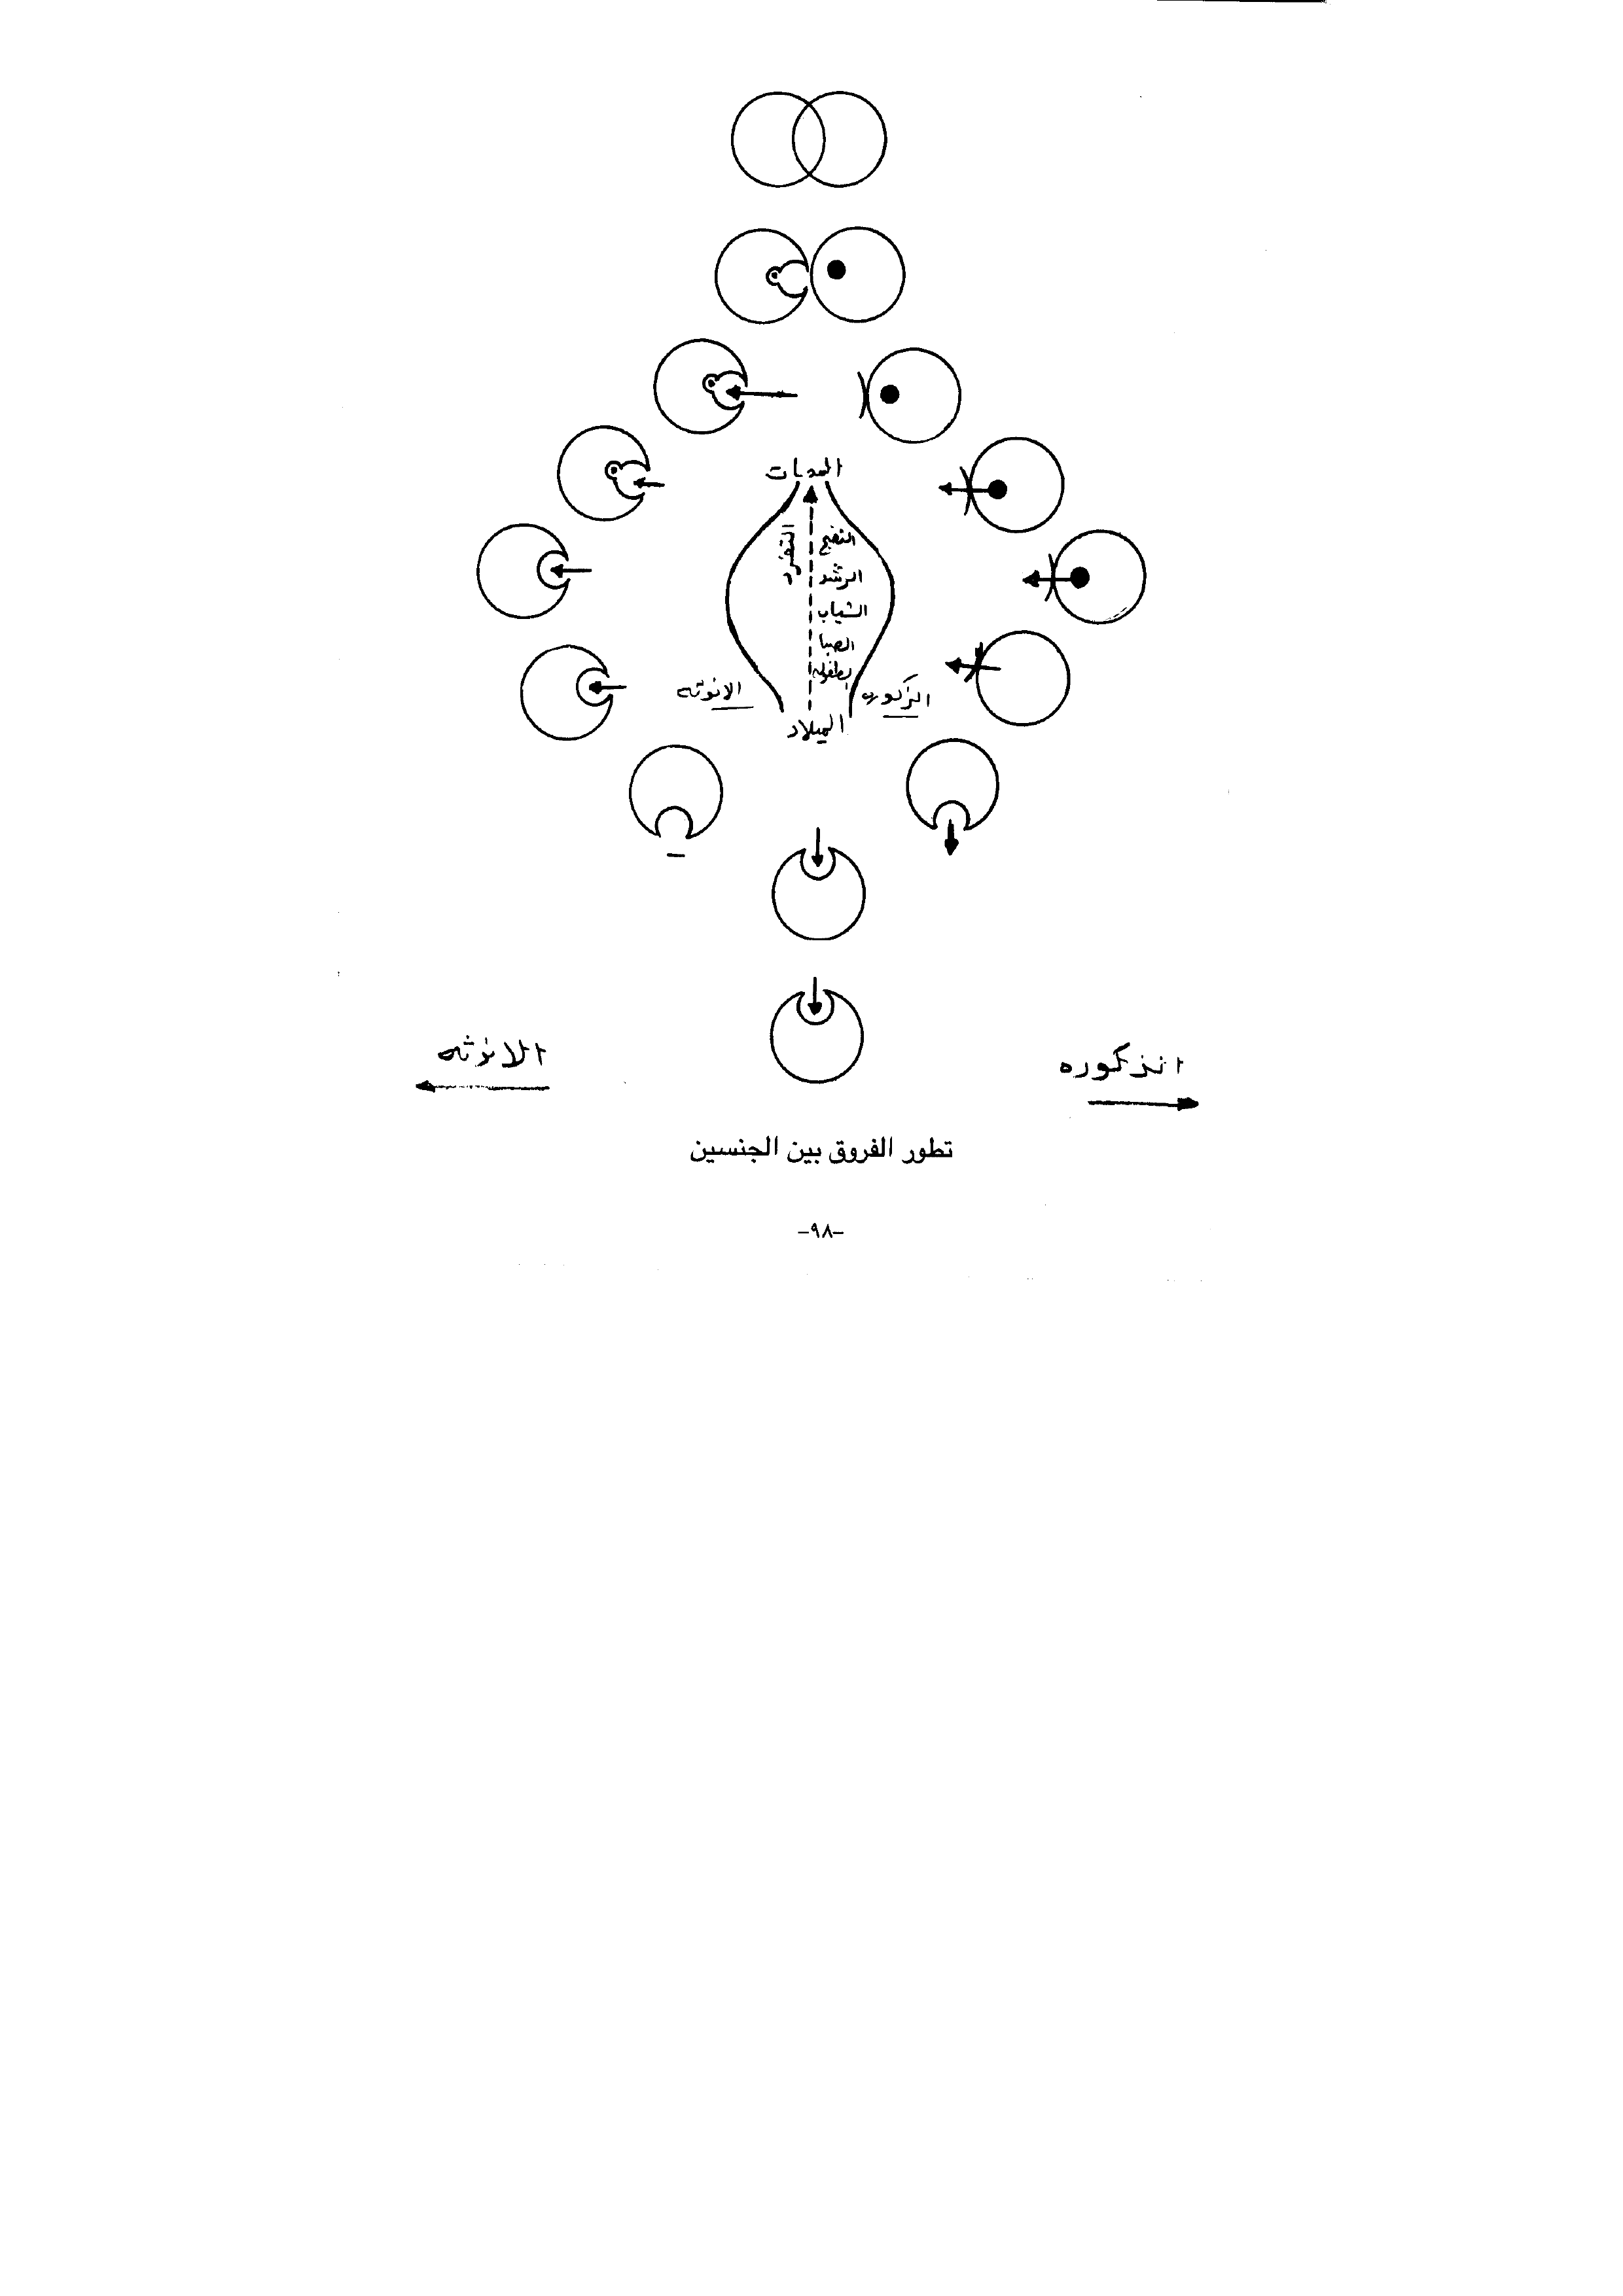 الممات
التفرد
النضج
الرشد
الشباب
الصبا
الطفوله
الانوثه
الذكوره
الميلاد
الانوثه
الذكوره
تطور الفروق بين الجنسين
–٩٨–